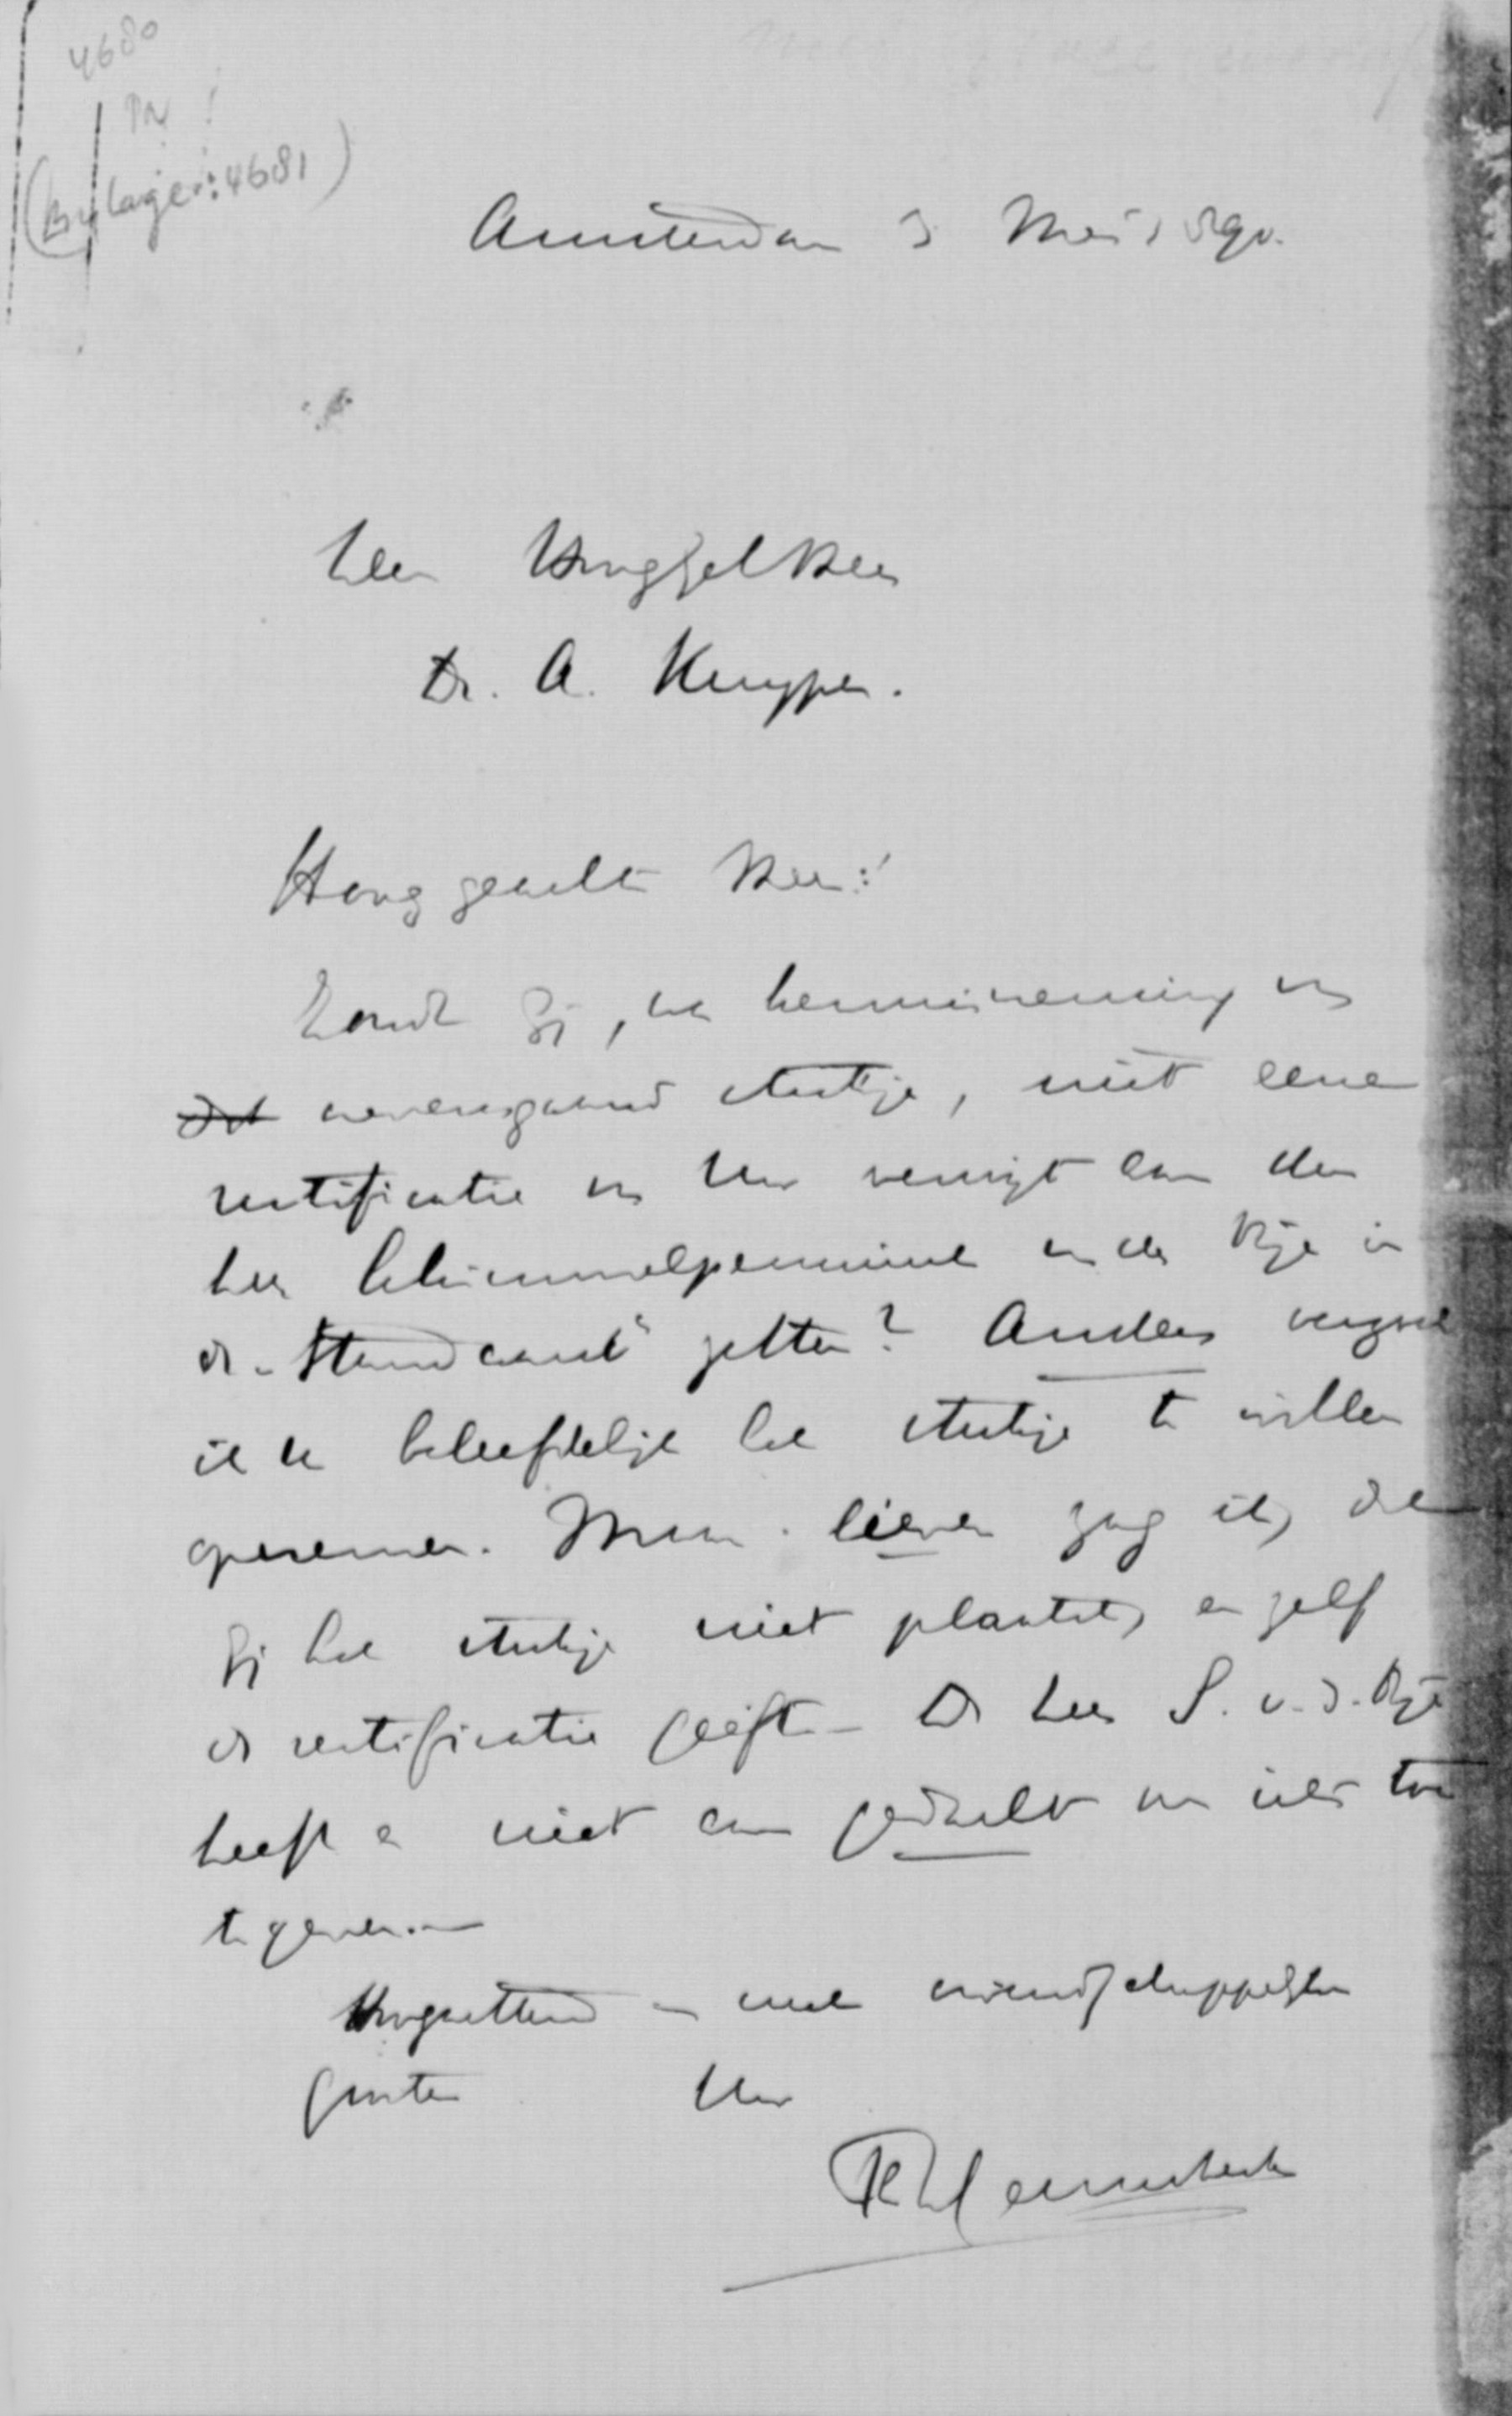 4680
(Bijlage: 4681)
Amsterdam 3 Mei 1890.
den Hooggel Heer
Dr. A. Kuyper.
Hooggeachte Heer!
Zoudt Gij, na kennisneming van
nevensgaand stukje, niet eene
rectificatie van Uw verwijt aan den
heer Schimmelpenninck v. der Oije in
de "Standaard" zetten? Anders verzoek
ik U beleefdelijk het stukje te willen
opnemen. Maar liever zag ik, dat
Gij het stukje niet plaatst, en zelf
de rectificatie geeft. De heer S. v. d. Oije
heeft er niet aan gedacht om iets toe
te geven.
Hoogachtend en met vriendschappelijke
groeten Uw